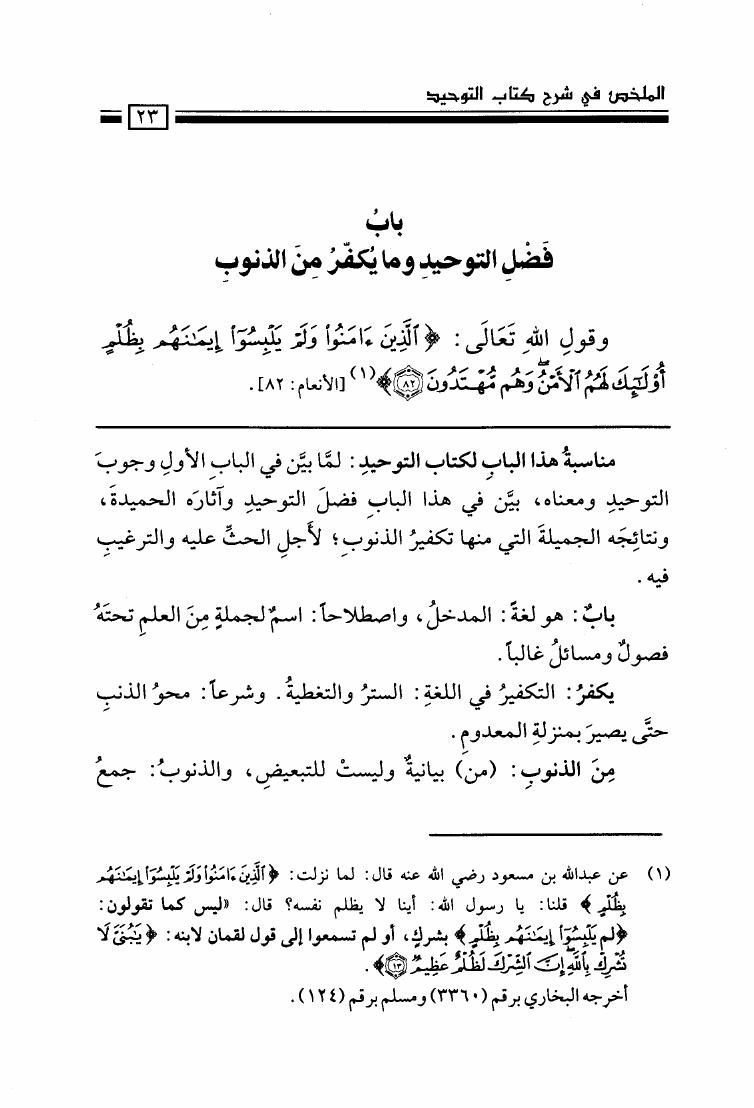 الملخص في شرح كتاب التوحيد
٢٣
بابُ
فَضْلِ التوحيدِ وما يُكفّرُ مِنَ الذنوبِ
وقولِ اللهِ تَعَالَى: ﴿ٱلَّذِينَ ءَامَنُوا۟ وَلَمْ يَلْبِسُوٓا۟ إِيمَـٰنَهُم بِظُلْمٍ
أُو۟لَـٰٓئِكَ لَهُمُ ٱلْأَمْنُ ۖ وَهُم مُّهْتَدُونَ ٨٢﴾(١) [الأنعام: ٨٢].
مناسبةُ هذا البابِ لكتاب التوحيدِ: لمَّا بيَّن في البابِ الأولِ وجوبَ
التوحيدِ ومعناه، بيَّن في هذا البابِ فضلَ التوحيدِ وآثارَه الحميدةَ،
ونتائِجَه الجميلةَ التي منها تكفيرُ الذنوبِ؛ لأجلِ الحثِّ عليه والترغيبِ
فيه.
بابٌ: هو لغةً: المدخلُ، واصطلاحاً: اسمٌ لجملةٍ مِنَ العلمِ تحتَهُ
فصولٌ ومسائلُ غالباً.
يكفرُ: التكفيرُ في اللغةِ: السترُ والتغطيةُ. وشرعاً: محوُ الذنبِ
حتَّى يصيرَ بمنزلةِ المعدومِ.
مِنَ الذنوبِ: (من) بيانيةٌ وليستْ للتبعيضِ، والذنوبُ: جمعُ
(١) عن عبدالله بن مسعود رضي الله عنه قال: لما نزلت: ﴿ٱلَّذِينَ ءَامَنُوا۟ وَلَمْ يَلْبِسُوٓا۟ إِيمَـٰنَهُم
بِظُلْمٍ﴾ قلنا: يا رسول الله: أينا لا يظلم نفسه؟ قال: «ليس كما تقولون:
﴿لم يَلْبِسُوٓا۟ إِيمَـٰنَهُم بِظُلْمٍ﴾ بشرك، أو لم تسمعوا إلى قول لقمان لابنه: ﴿يَـٰبُنَىَّ لَا
تُشْرِكْ بِٱللَّهِ ۖ إِنَّ ٱلشِّرْكَ لَظُلْمٌ عَظِيمٌ ١٣﴾.
أخرجه البخاري برقم (٣٣٦٠) ومسلم برقم (١٢٤).